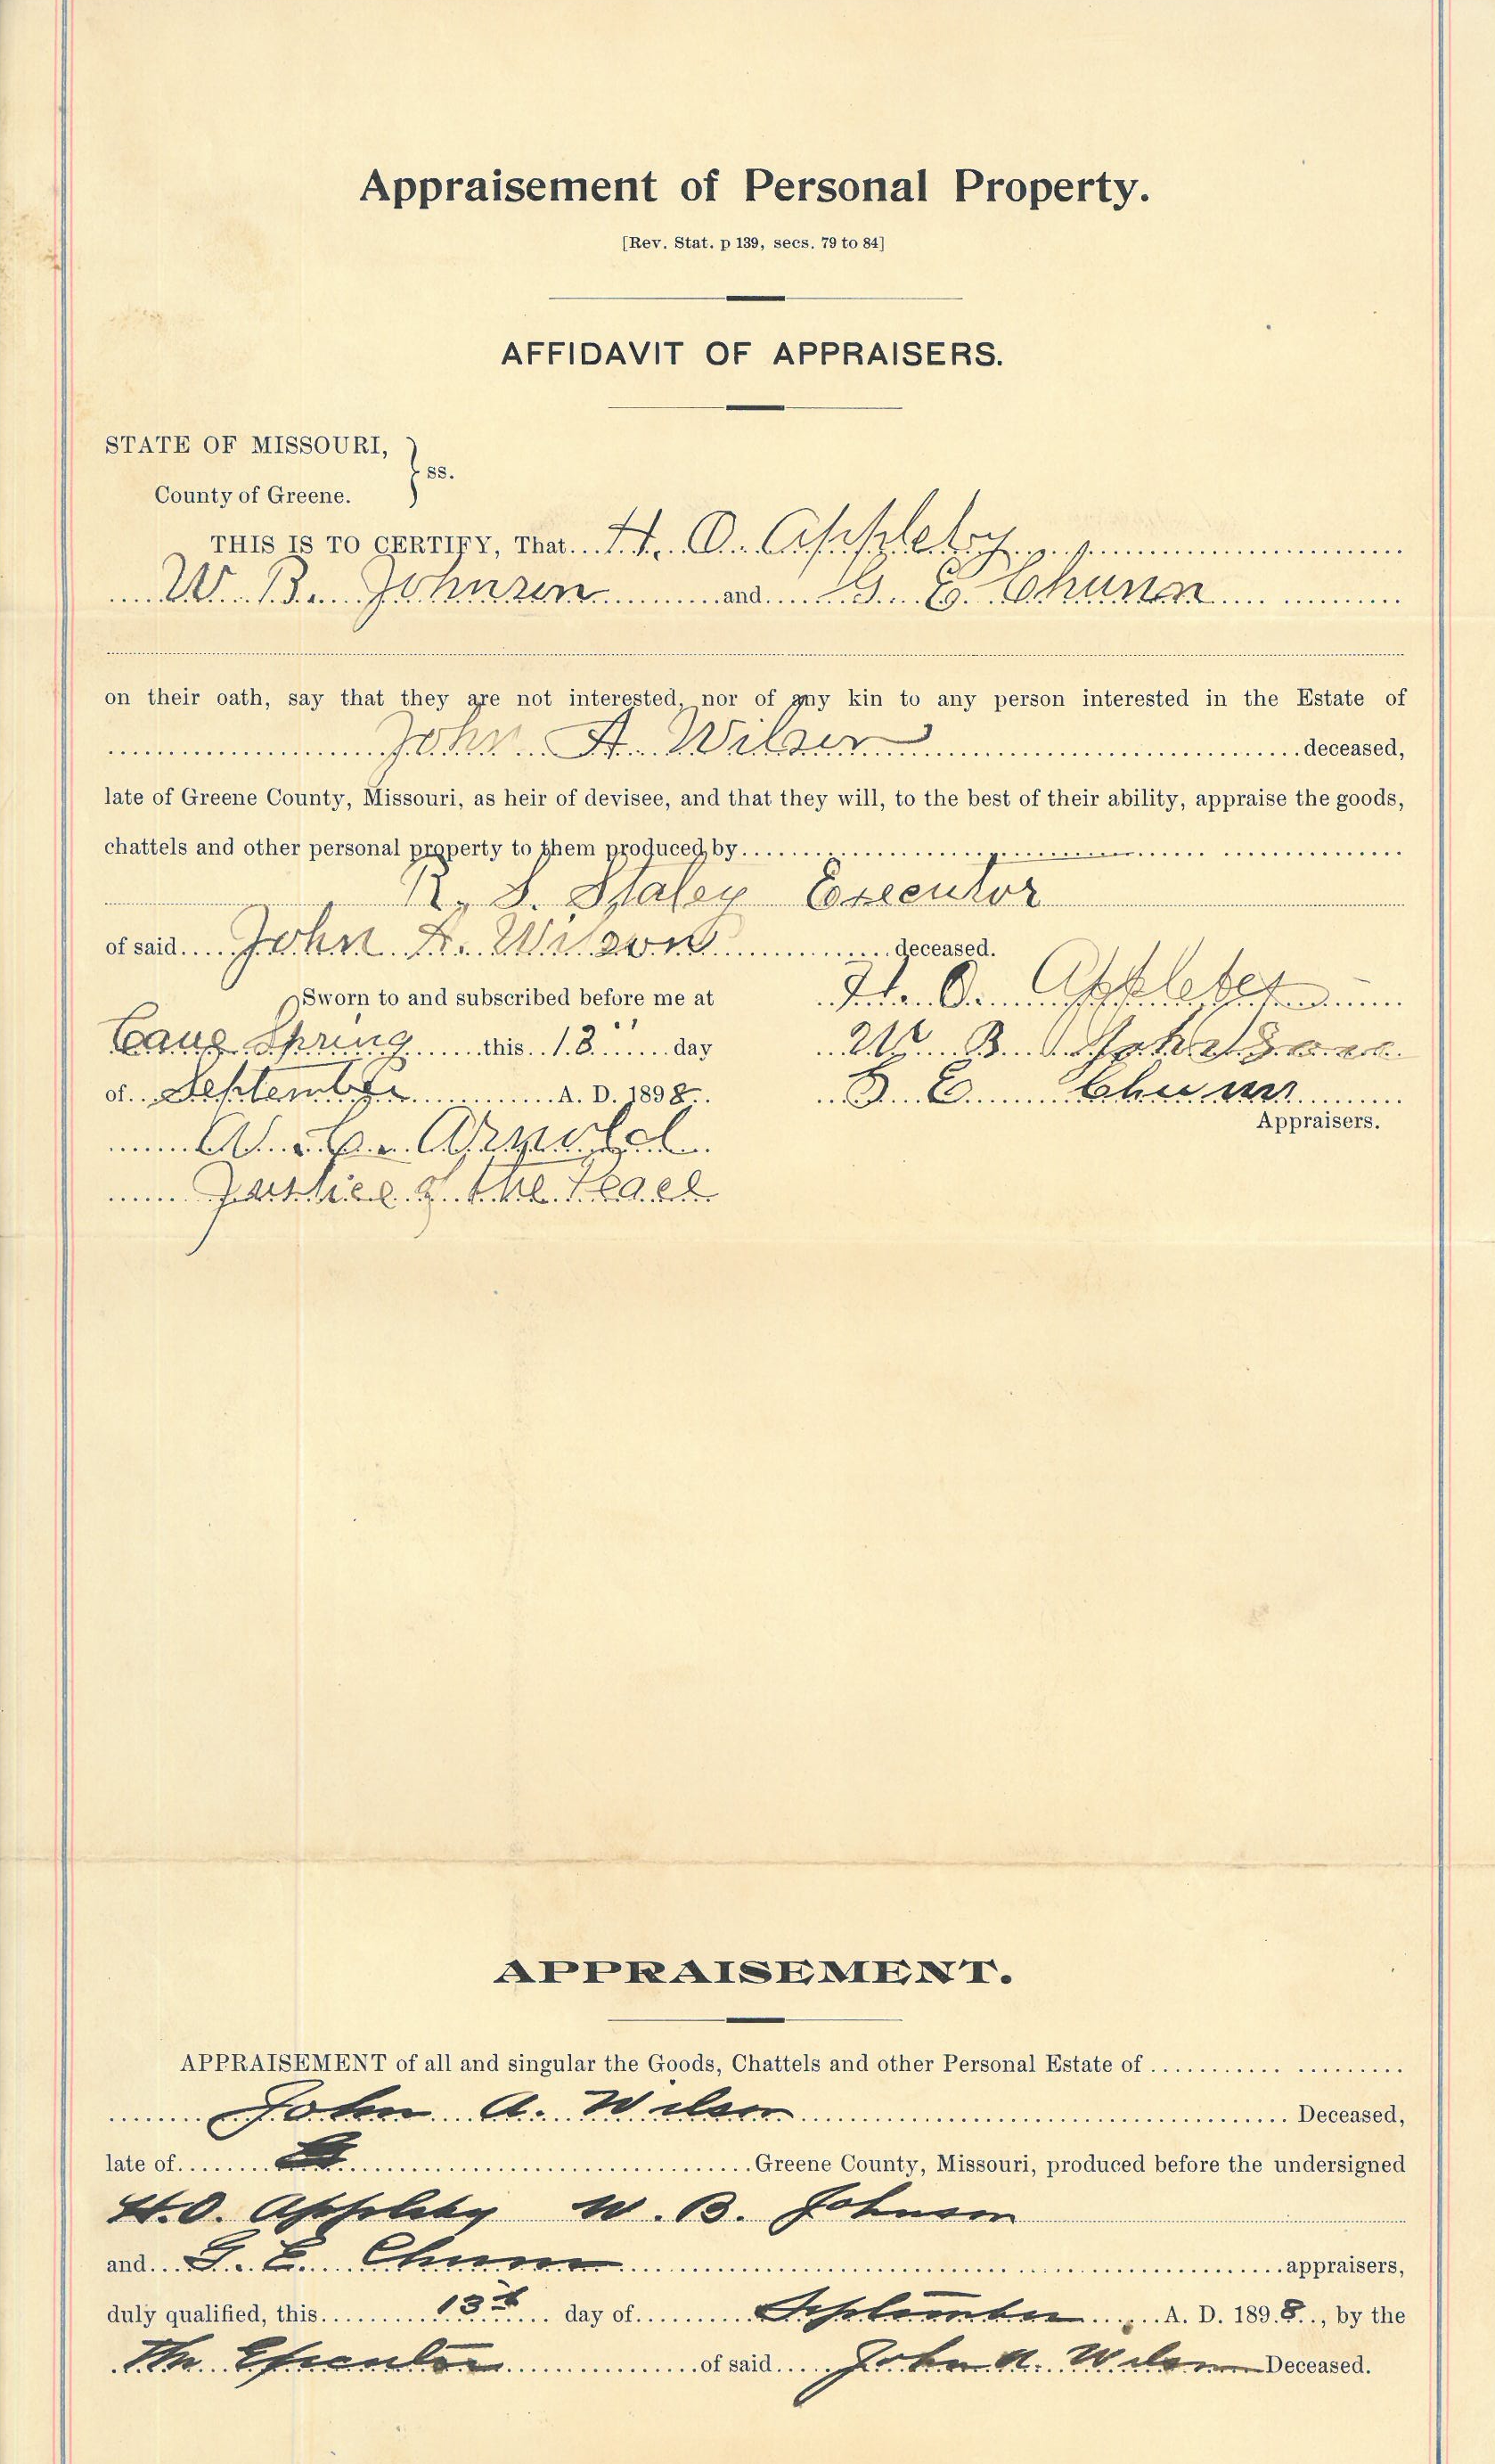 Appraisement of Personal Property.
[Rev. Stat. p 139, secs. 79 to 84]
AFFIDAVIT OF APPRAISERS.
STATE OF MISSOURI,
ss.
County of Greene.
THIS IS TO CERTIFY, That H. O. Appleby
W. B. Johnson and G. E. Chunn
on their oath, say that they are not interested, nor of any kin to any person interested in the Estate of
John A. Wilson deceased,
late of Greene County, Missouri, as heir of devisee, and that they will, to the best of their ability, appraise the goods,
chattels and other personal property to them produced by
R. S. Staley Executor
of said John A. Wilson deceased.
Sworn to and subscribed before me at H. O. Appleby
Cave Spring this 13" day W B Johnson
of September A. D. 1898. G E Chunn
Appraisers.
Arnold
Justice of the Peace
APPRAISEMENT.
APPRAISEMENT of all and singular the Goods, Chattels and other Personal Estate of
John A. Wilson Deceased,
late of Greene County, Missouri, produced before the undersigned
H. O. Appleby W. B. Johnson
and G. E. Chunn appraisers,
duly qualified, this 13th day of September A. D. 1898., by the
The Executor of said John A. Wilson Deceased.